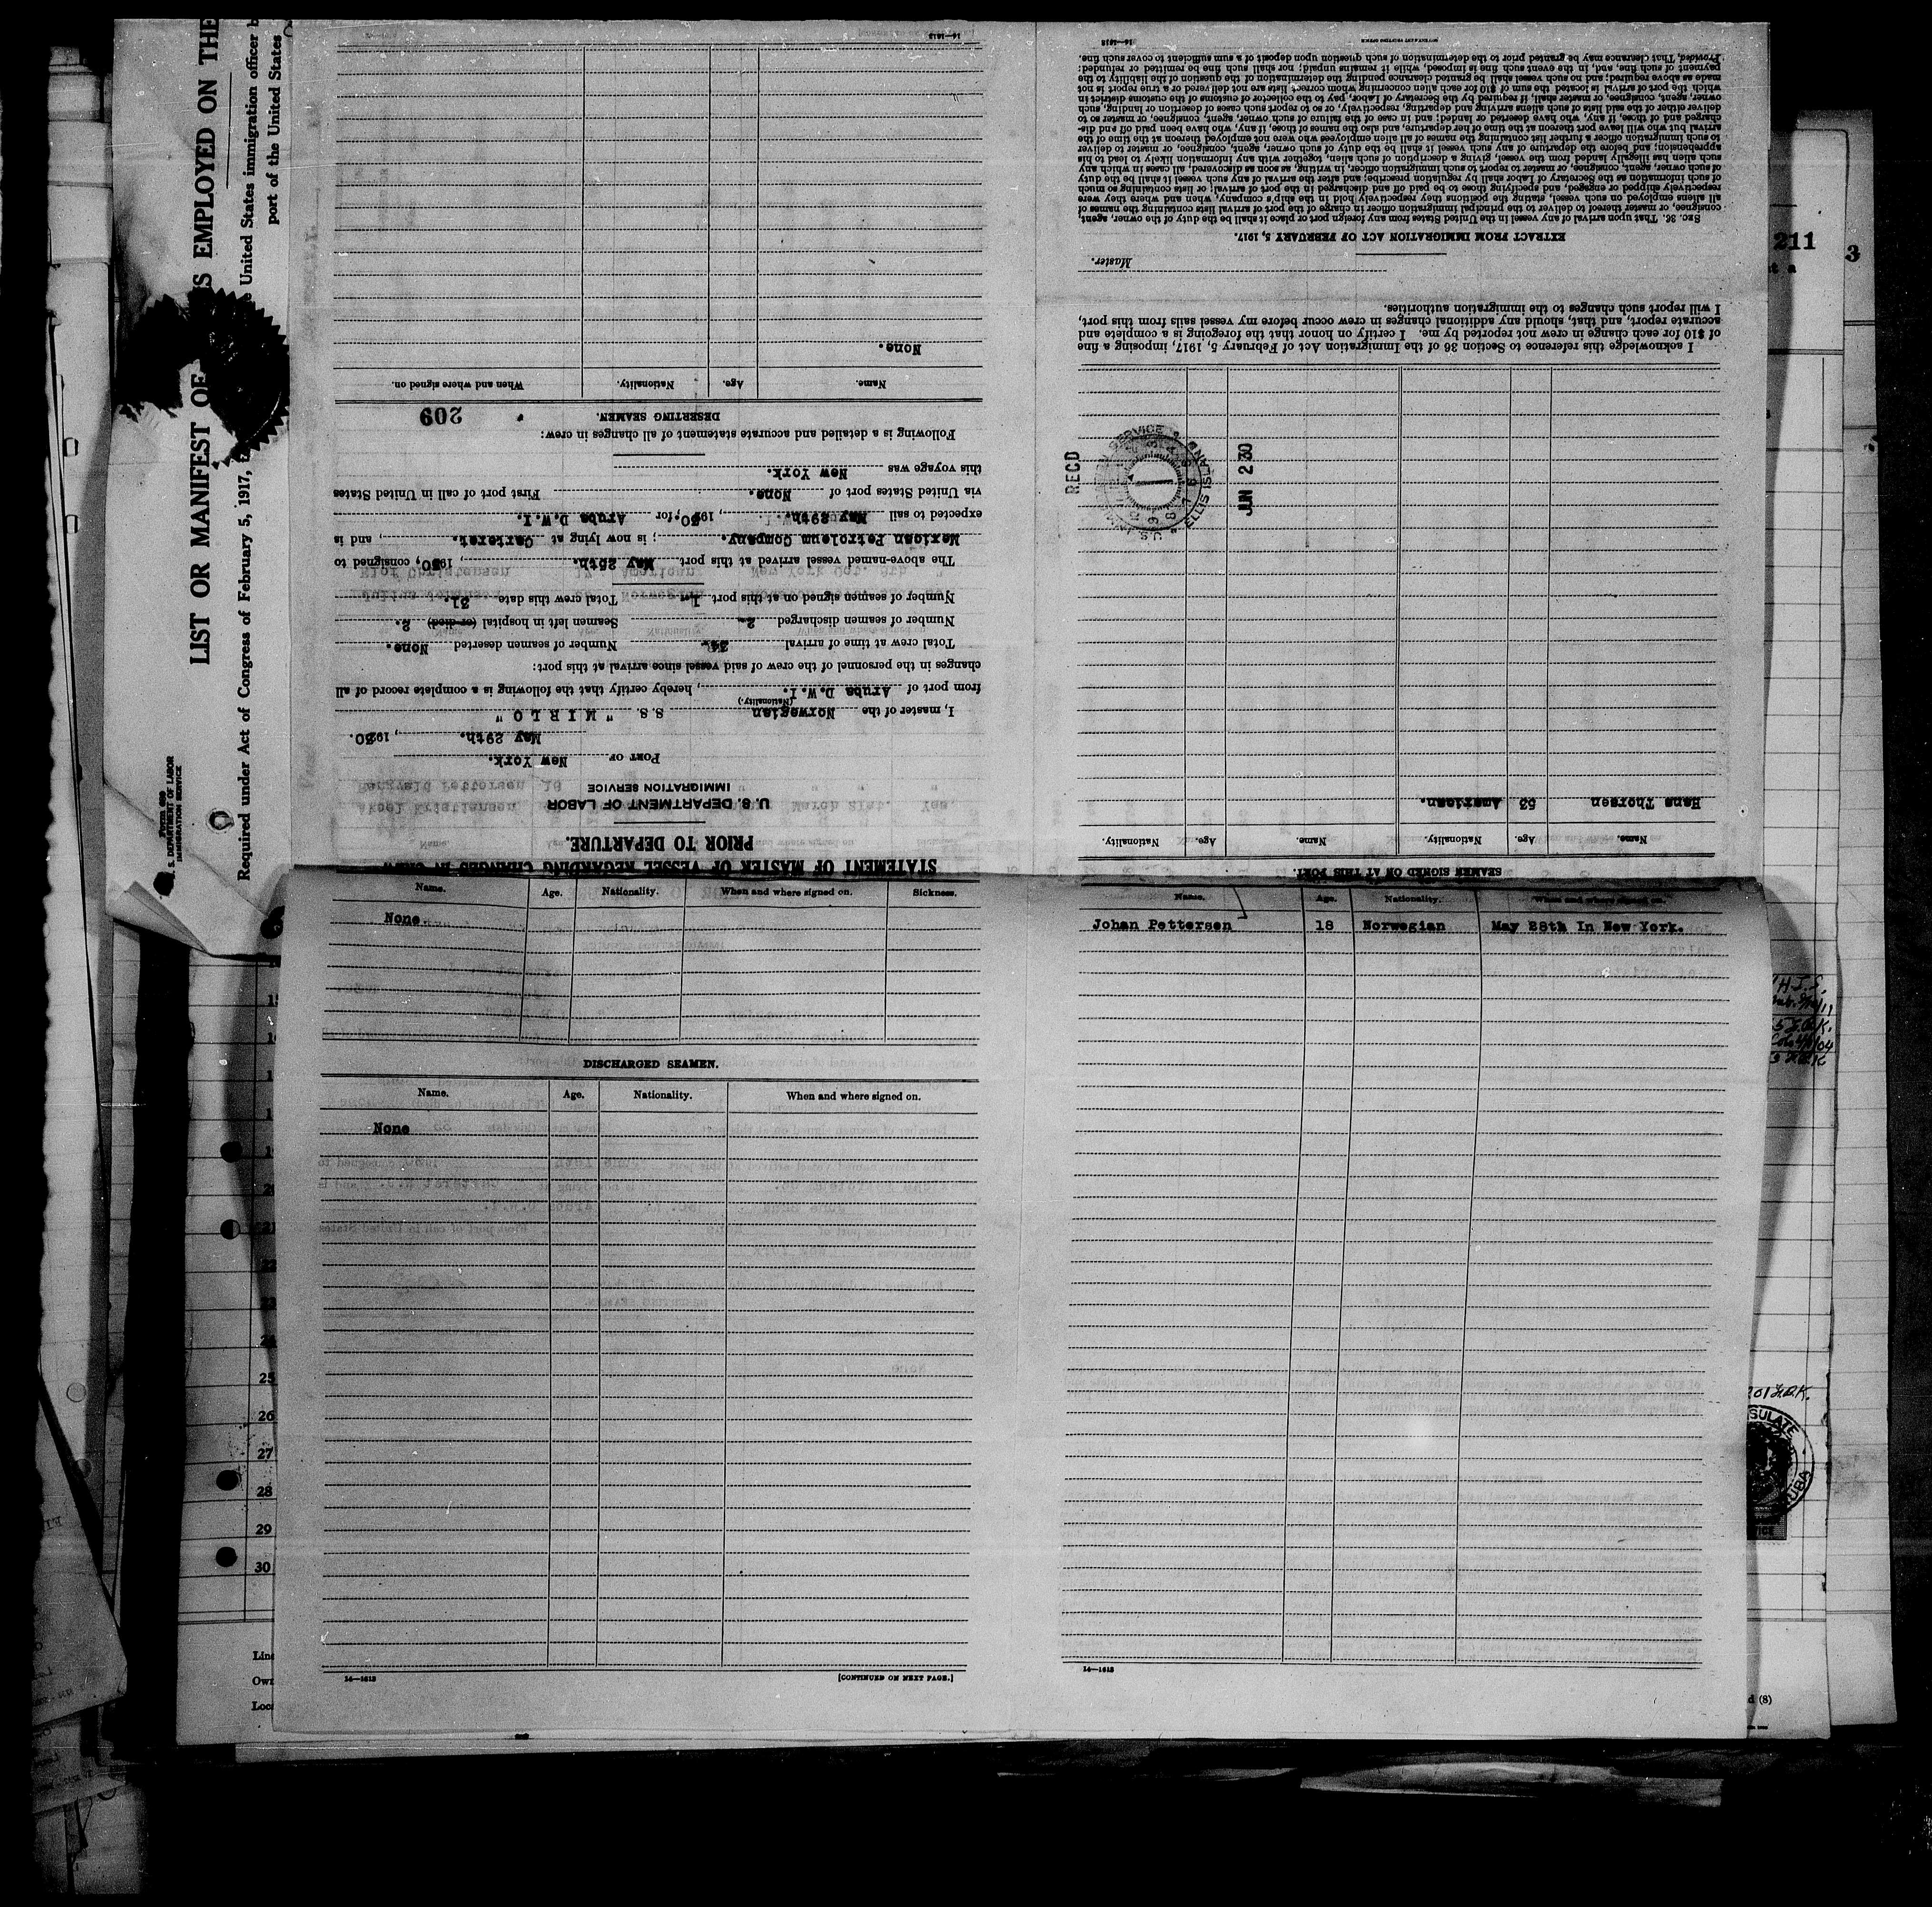 LIST OR MANIFEST OF
S EMPLOYED ON THE
Required under Act of Congress of February 5, 1917,
United States immigration officer
port of the United States
Form 689
U. S. DEPARTMENT OF LABOR
IMMIGRATION SERVICE
STATEMENT OF MASTER OF VESSEL REGARDING CHANGES IN CREW
PRIOR TO DEPARTURE.
U. S. DEPARTMENT OF LABOR
IMMIGRATION SERVICE
PORT OF New York.
May 29th. , 1930.
I, master of the Norwegian S.S. " M I R L O "
(Nationality.)
from port of Aruba D.W.I. , hereby certify that the following is a complete record of all
changes in the personnel of the crew of said vessel since arrival at this port:
Total crew at time of arrival 34. Number of seamen deserted None.
Number of seamen discharged 2. Seamen left in hospital (or died) 2.
Number of seamen signed on at this port 1. Total crew this date 31.
The above-named vessel arrived at this port May 25th. , 1930, consigned to
Mexican Petroleum Company. ; is now lying at Carteret. , and is
expected to sail May 29th. , 1930, for Aruba D.W.I.
via United States port of None. First port of call in United States
this voyage was New York.
Following is a detailed and accurate statement of all changes in crew:
DESERTING SEAMEN.
209
Name. Age. Nationality. When and where signed on.
None.
14—1613
SEAMEN SIGNED ON AT THIS PORT.
Name. Age. Nationality. Name. Age. Nationality.
Hans Thorsen 53 American.
RECD
JUN 2 30
U.S. SERVICE
ELLIS ISLAND
I acknowledge this reference to Section 36 of the Immigration Act of February 5, 1917, imposing a fine
of $10 for each change in crew not reported by me. I certify on honor that the foregoing is a complete and
accurate report, and that, should any additional changes in crew occur before my vessel sails from this port,
I will report such changes to the immigration authorities.
Master.
EXTRACT FROM IMMIGRATION ACT OF FEBRUARY 5, 1917.
SEC. 36. That upon arrival of any vessel in the United States from any foreign port or place it shall be the duty of the owner, agent,
consignee, or master thereof to deliver to the principal immigration officer in charge of the port of arrival lists containing the names of
all aliens employed on such vessel, stating the positions they respectively hold in the ship's company, when and where they were
respectively shipped or engaged, and specifying those to be paid off and discharged in the port of arrival; or lists containing so much
of such information as the Secretary of Labor shall by regulation prescribe; and after the arrival of any such vessel it shall be the duty
of such owner, agent, consignee, or master to report to such immigration officer, in writing, as soon as discovered, all cases in which any
such alien has illegally landed from the vessel, giving a description of such alien, together with any information likely to lead to his
apprehension; and before the departure of any such vessel it shall be the duty of such owner, agent, consignee, or master to deliver
to such immigration officer a further list containing the names of all alien employees who were not employed thereon at the time of the
arrival but who will leave port thereon at the time of her departure, and also the names of those, if any, who have been paid off and dis-
charged and of those, if any, who have deserted or landed; and in case of the failure of such owner, agent, consignee, or master so to
deliver either of the said lists of such aliens arriving and departing, respectively, or so to report such cases of desertion or landing, such
owner, agent, consignee, or master, shall, if required by the Secretary of Labor, pay to the collector of customs of the customs district in
which the port of arrival is located the sum of $10 for each alien concerning whom correct lists are not delivered or a true report is not
made as above required; and no such vessel shall be granted clearance pending the determination of the question of the liability to the
payment of such fine, and, in the event such fine is imposed, while it remains unpaid; nor shall such fine be remitted or refunded:
Provided, That clearance may be granted prior to the determination of such question upon deposit of a sum sufficient to cover such fine.
14—1613
Name. Age. Nationality. When and where signed on. Sickness.
None.
DISCHARGED SEAMEN.
Name. Age. Nationality. When and where signed on.
None
14—1613
[CONTINUED ON NEXT PAGE.]
Name. Age. Nationality. When and where signed on.
Johan Pettersen 18 Norwegian May 28th In New York.
14—1613
211
3
25
26
27
28
29
30
Line
Own
Loca
d (8)